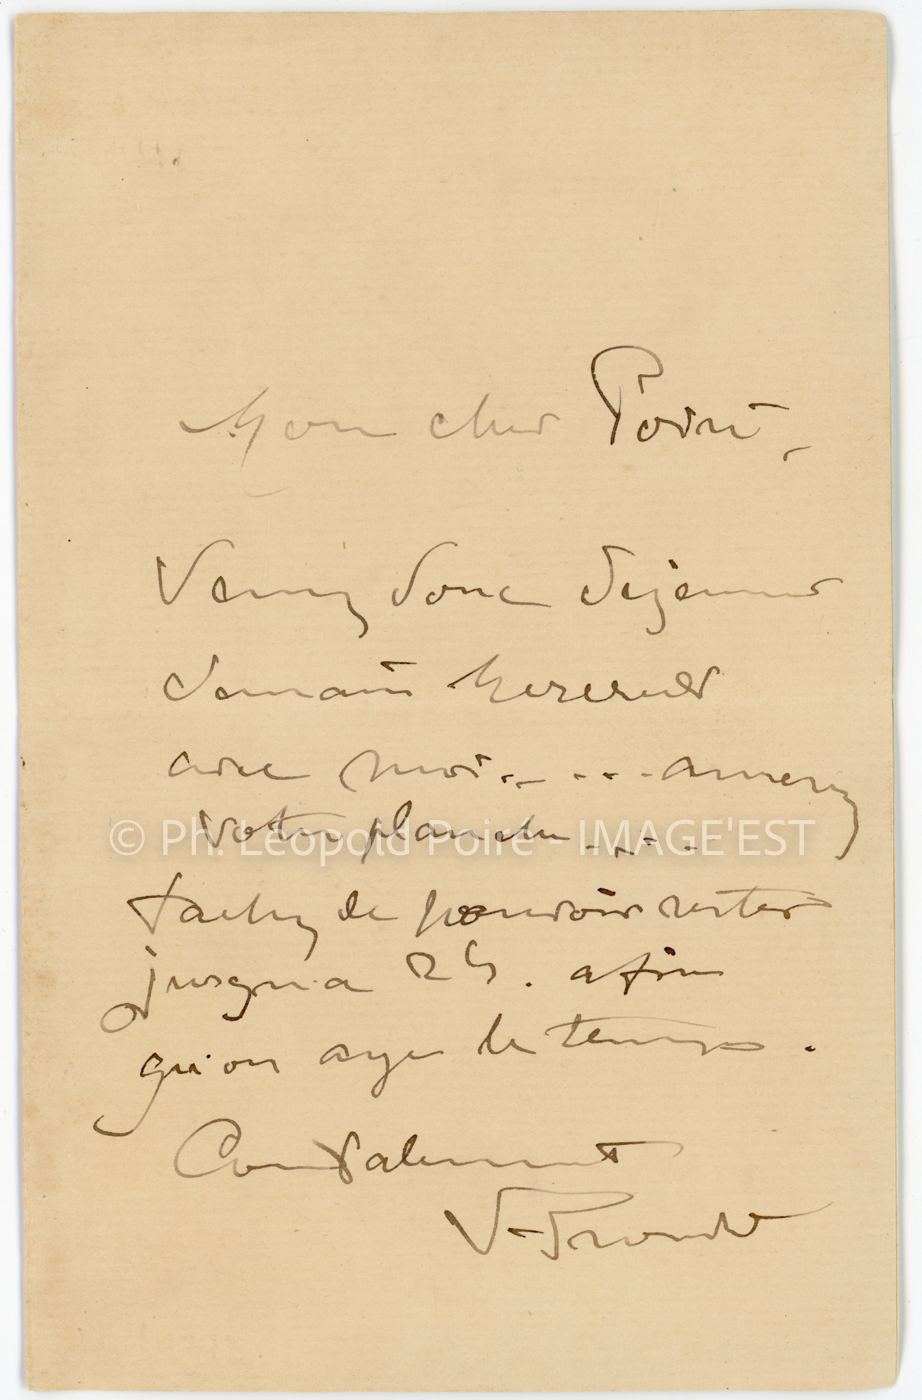 Mon cher Poiré,
Venez donc déjeuner
demain mercredi
avec moi... amenez
votre planche....
© Ph. Léopold Poiré - IMAGE'EST
tachez de pouvoir rester
jusqu'a 2h. afin
qu'on aye le temps.
Cordialement
V. Prouvé